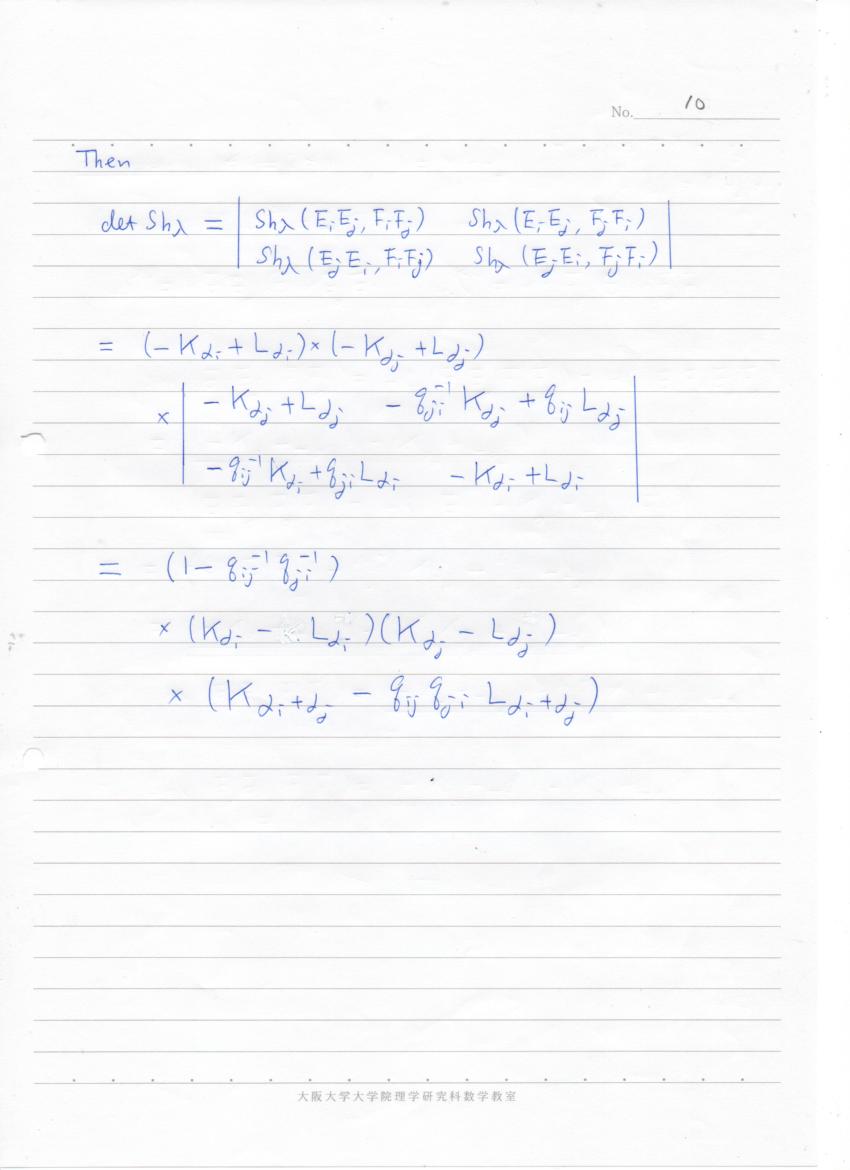 No. 10
Then
det Sh_λ = | Sh_λ(E_iE_j, F_iF_j) Sh_λ(E_iE_j, F_jF_i) |
| Sh_λ(E_jE_i, F_iF_j) Sh_λ(E_jE_i, F_jF_i) |
= (-K_{α_i} + L_{α_i}) × (-K_{α_j} + L_{α_j})
× | -K_{α_j} + L_{α_j} -q_{ji}^{-1} K_{α_j} + q_{ij} L_{α_j} |
| -q_{ij}^{-1} K_{α_i} + q_{ji} L_{α_i} -K_{α_i} + L_{α_i} |
= (1 - q_{ij}^{-1} q_{ji}^{-1})
× (K_{α_i} - L_{α_i})(K_{α_j} - L_{α_j})
× (K_{α_i+α_j} - q_{ij} q_{ji} L_{α_i+α_j})
大阪大学大学院理学研究科数学教室